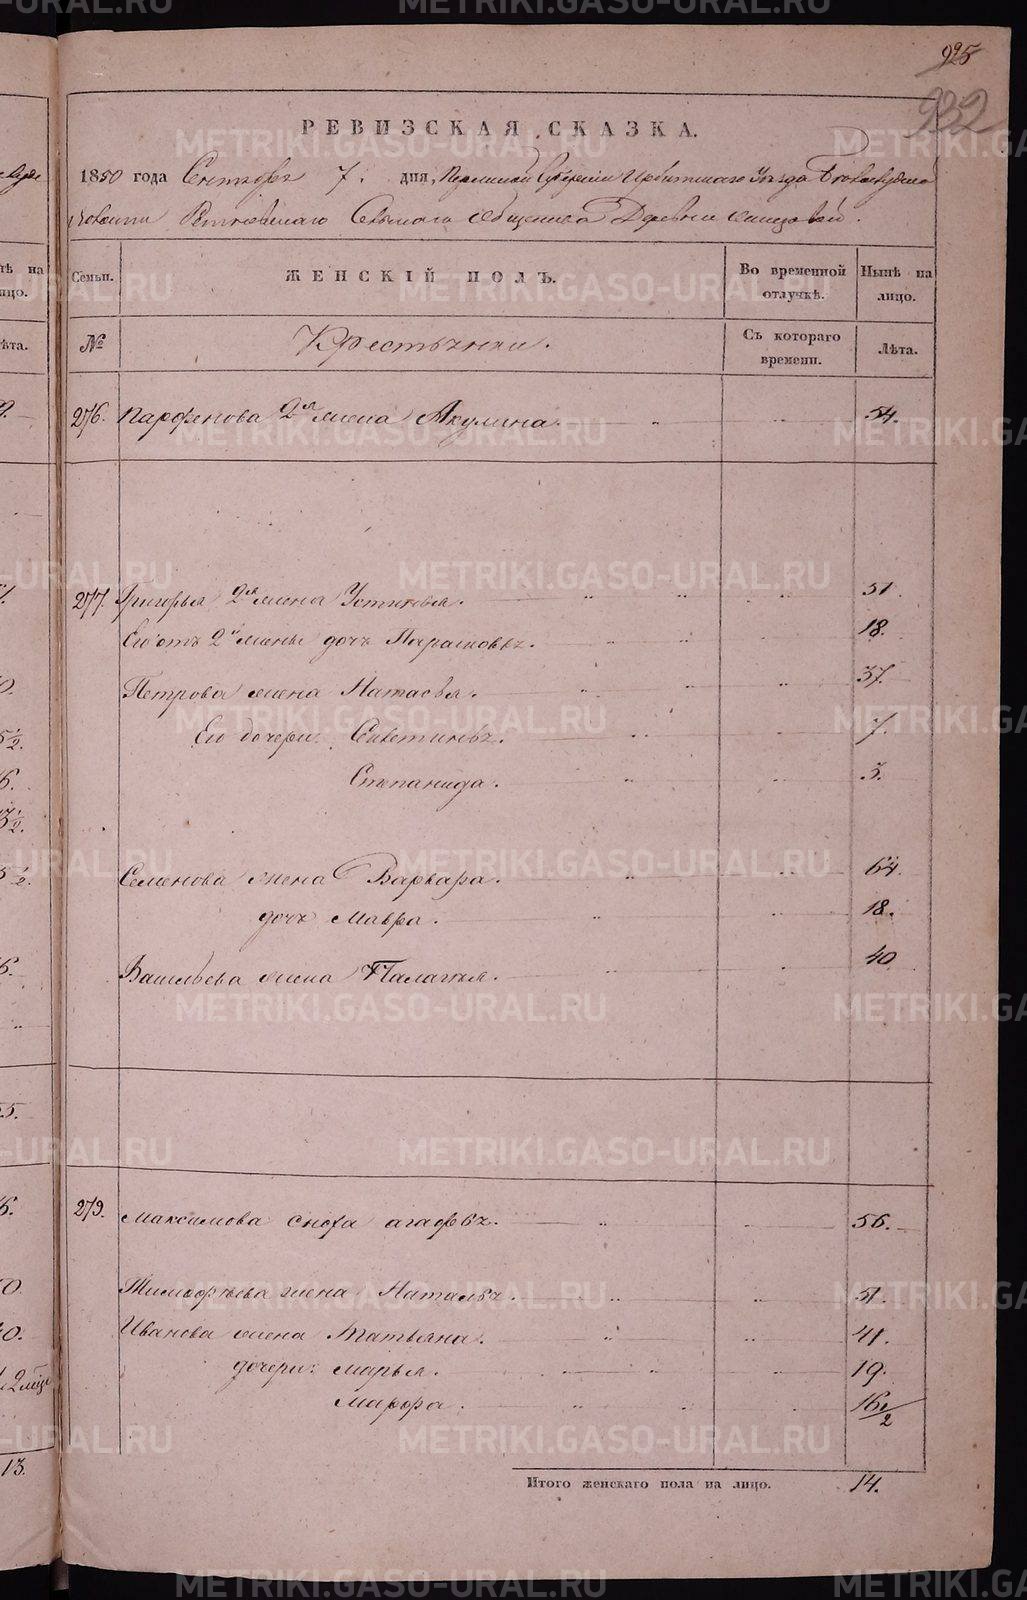 925
932
РЕВИЗСКАЯ СКАЗКА.
1850 года Сентября 7. дня, Пермской Губернии Ирбитскаго Уезда
волости Ретневскаго Сельскаго Общества Деревни
Семьи. ЖЕНСКІЙ ПОЛЪ. Во временной отлучкѣ. Нынѣ на лицо.
№ Крестьянки. Съ котораго времени. Лѣта.
276. Парфенова 2я жена Акулина 54.
277. Григорья 2я жена Устинья. 51.
Его отъ 2й жены дочь Парасковья. 18.
Петрова жена Натасья. 37.
Его дочери: 7.
Степанида. 3.
Семенова жена Варвара. 64.
дочь Мавра. 18.
Васильева жена Палагея. 40.
279. Максимова сноха Агафья. 56.
Тимофеева жена Наталья. 51.
Иванова жена Татьяна. 41.
дочери: Марья. 19.
Марфа. 16 1/2
Итого женскаго пола на лицо. 14.
METRIKI.GASO-URAL.RU